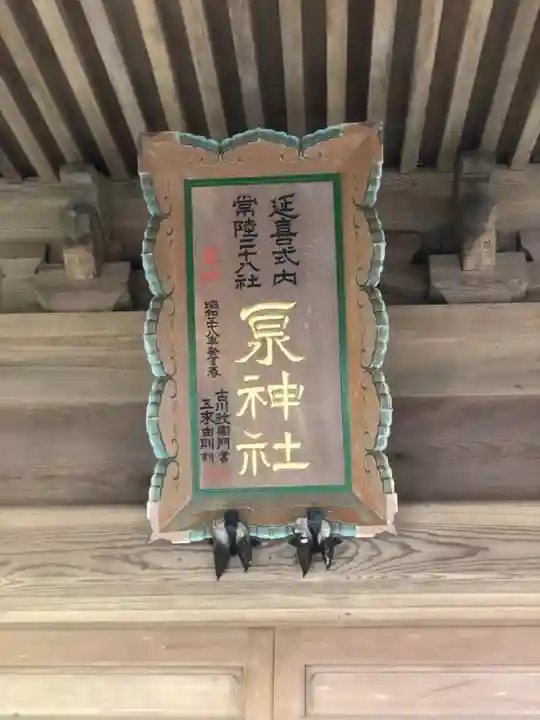 延喜式内
常陸二十八社
泉神社
昭和五十八年癸亥春
古川政衛門書